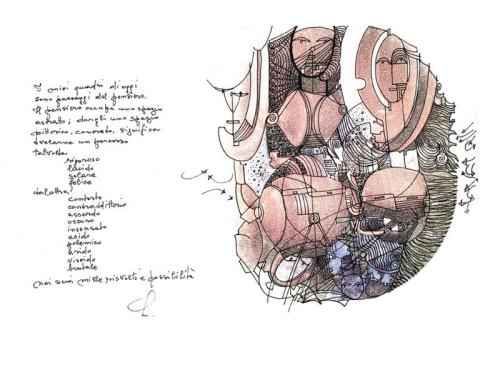 I miei quadri di oggi
sono paesaggi del pensiero.
Il pensiero occupa uno spazio
astratto; dargli uno spazio
pittorico, concreto, significa
svelarne un percorso
talvolta
riposo
lucido
solare
felice
dal'altra
contorto
contraddittorio
assurdo
oscuro
insensato
acido
polemico
arido
viscido
brutale
nei suoi mille risvolti e possibilità